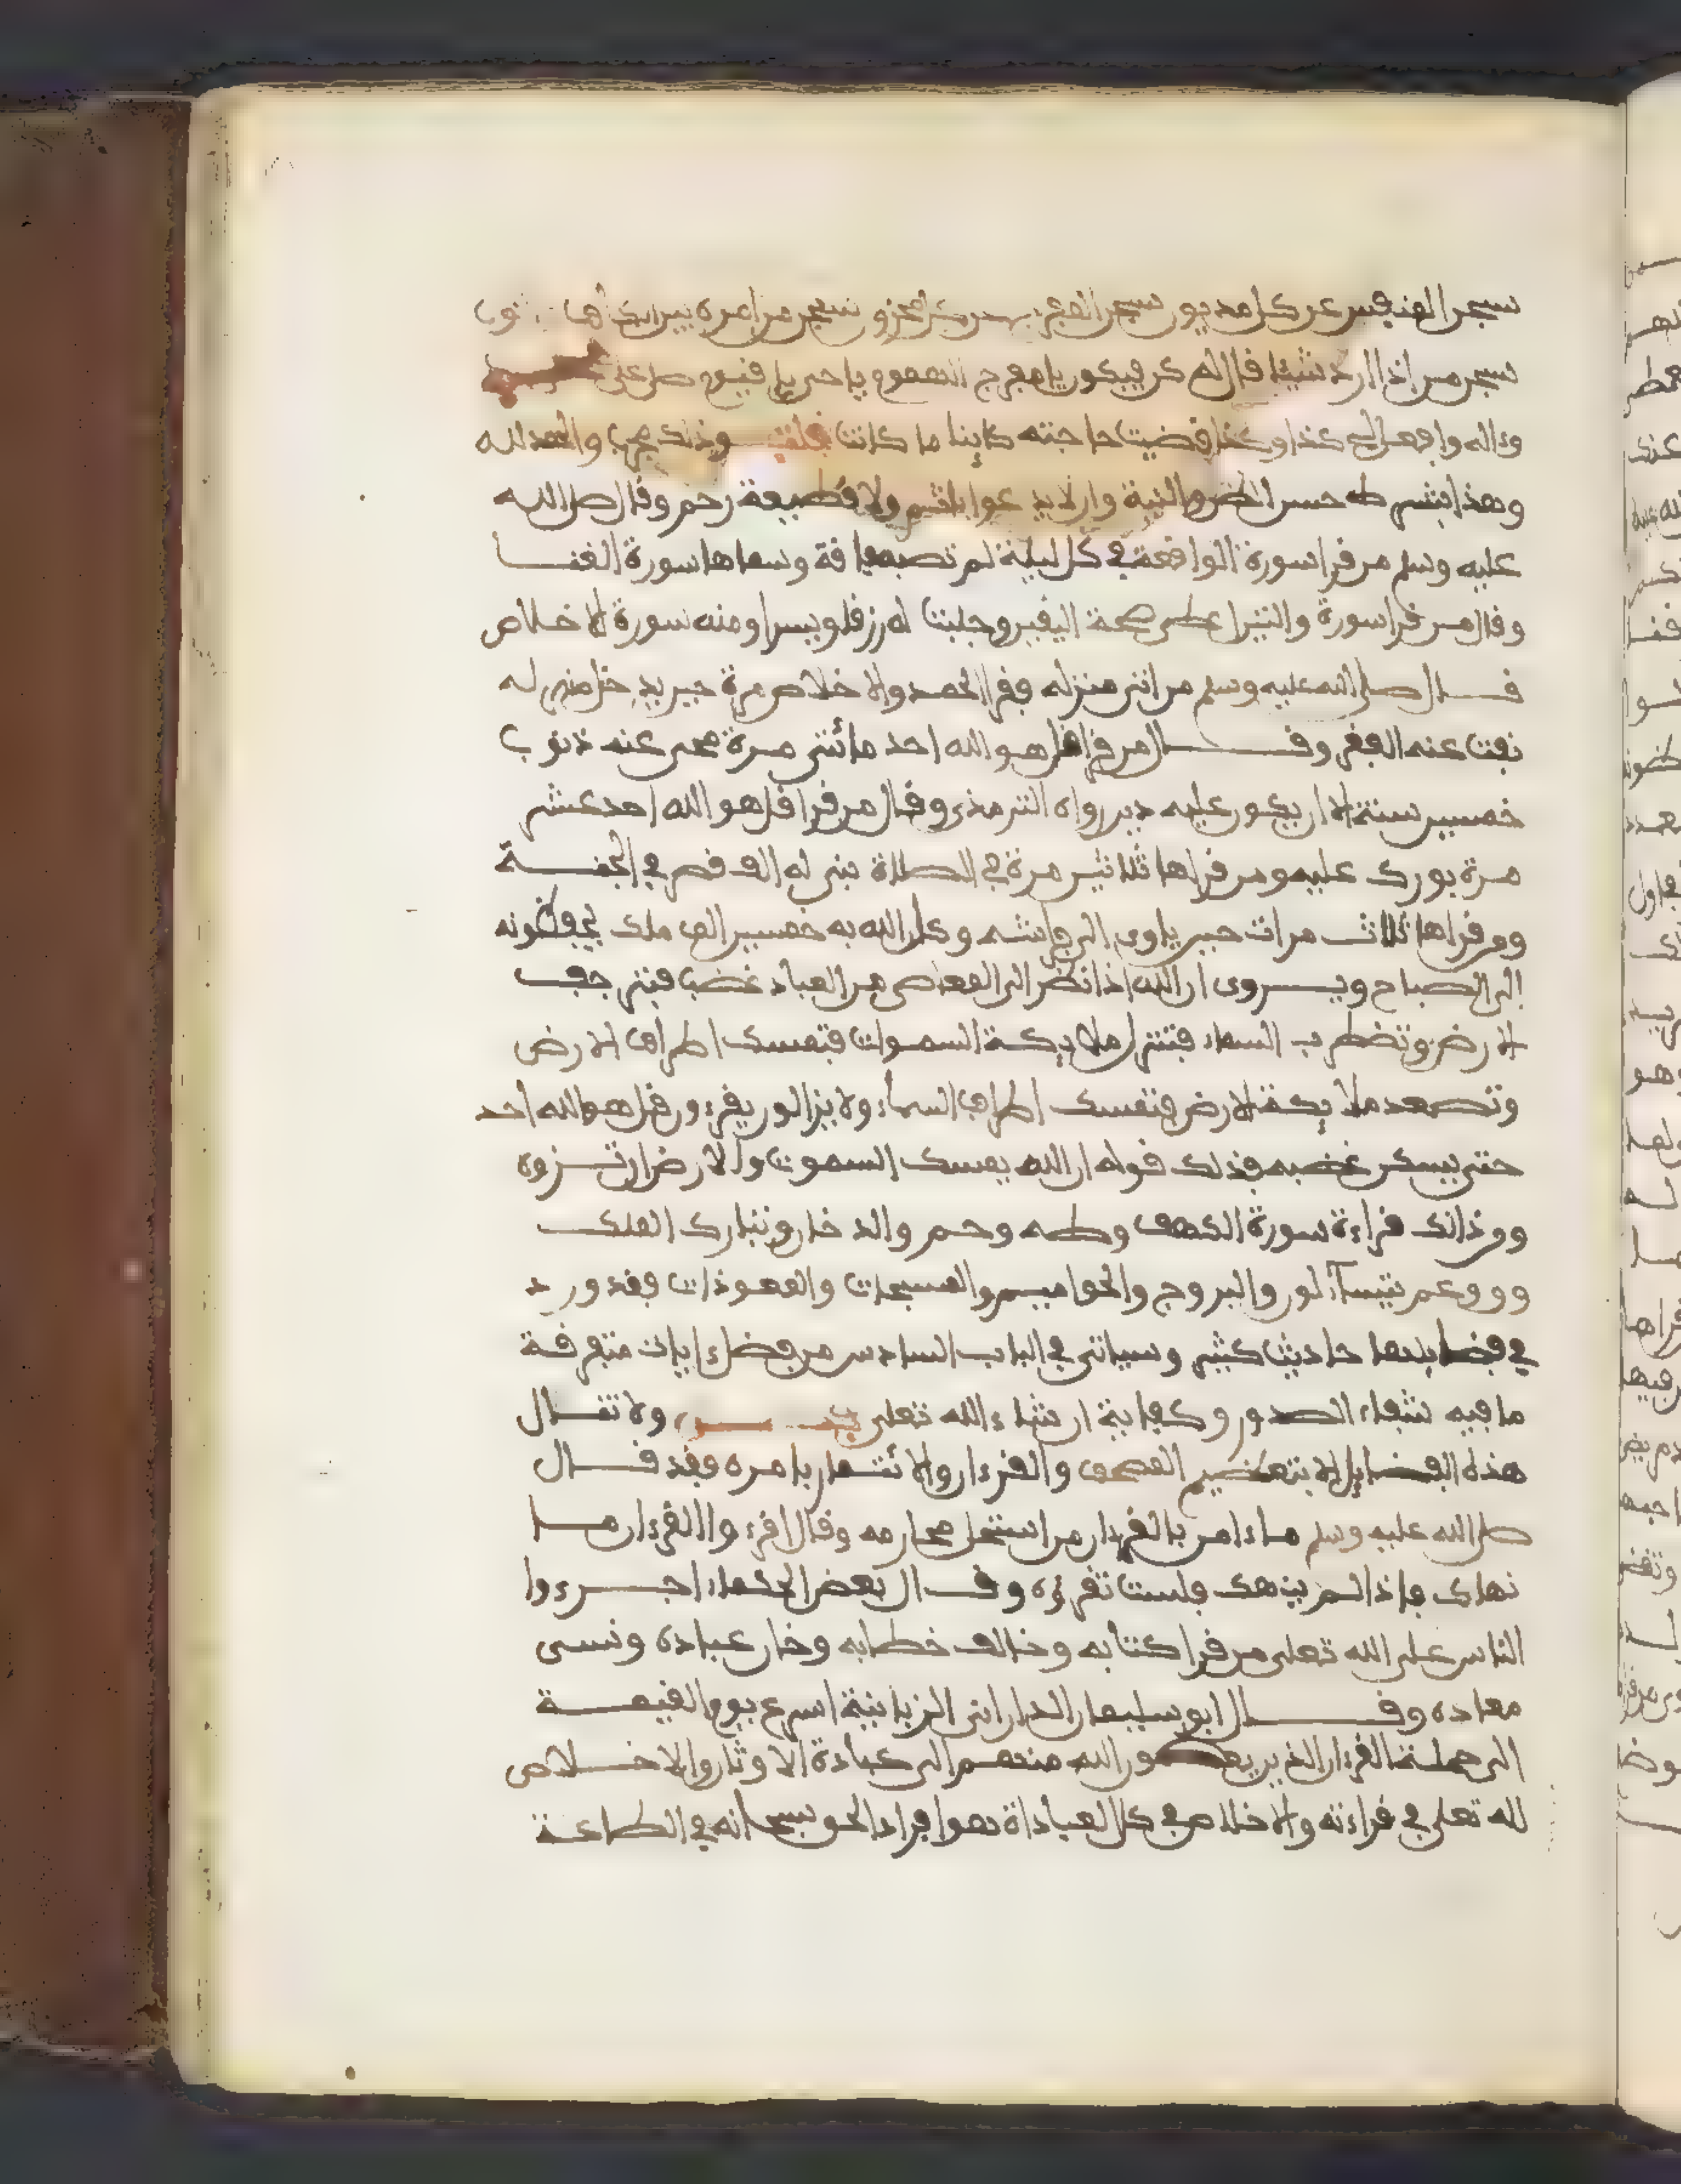 سبحن المنفس عن كل مديون سبحن المفرج عن كل محزون سبحن من امره بين الكاف والنون
سبحن من اذا اراد شيئا فال له كن فيكون يا مفرج الهموم يا حي يا فيوم صل على
وءاله وافعل لي كذا وكذا فضيت حاجته كاينا ما كانت فلت وذلك مجرب والحمد لله
وهذا بشرط حسن الظن والنية وان لا يدعوا باثم ولا فطيعة رحم وفال صل الله
عليه وسلم من فرا سورة الوافعة في كل ليلة لم تصبه فافة وسماها سورة الغنا
وفال من فرا سورة والتين اعطي صحة اليفين وجلبت له رزفا ويسرا ومنه سورة الاخلاص
فال صلى الله عليه وسلم من اتى منزله ففرا الحمد والاخلاص مرة حين يدخل منزله
نفت عنه الففر وفال من فرا فل هو الله احد مائتي مرة محي عنه ذنوب
خمسين سنة الا ان يكون عليه دين رواه الترمذي وفال من فرا فل هو الله احد عشر
مرة بورك عليه ومن فراها ثلاثين مرة في الصلاة بني له الف فصر في الجنة
ومن فراها ثلاث مرات حين ياوي الى فراشه وكل الله به خمسين الف ملك يحفظونه
الى الصباح ويروى ان الله اذا نظر الى المعاصي من العباد غضب فترجف
الارض وتضطرب السماء فتنزل ملايكة السموات فتمسك اطراف الارض
وتصعد ملايكة الارض فتمسك اطراف السماء ولا يزالون يفرءون فل هو الله احد
حتى يسكن غضبه فذلك فوله ان الله يمسك السموت والارض ان تزولا
ومن ذالك فراءة سورة الكهف وطه وحم والدخان وتبارك الملك
وعم يتساءلون والبروج والحواميم والمسبحات والمعوذات ففد ورد
في فضايلها احاديث كثيرة وسياتي في الباب السادس من فضل ءايات متفرفة
ما فيه شفاء الصدور وكفاية ان شاء الله تعلى ولا تنال
هذه الفضايل الا بتعظيم المصحف والفرءان والائتمار بامره ففد فال
صل الله عليه وسلم ما ءامن بالفرءان من استحل محارمه وفال افرءوا الفرءان ما
نهاك فاذا لم ينهك فلست تفرؤه وفال بعض الحكماء اجرءوا
الناس على الله تعلى من فرا كتابه وخالف خطابه وخان عباده ونسى
معاده وفال ابو سليمان الداراني الزبانية اسرع يوم الفيمة
الى حملة الفرءان الذين يعصون الله منهم الى عبادة الاوثان والاخلاص
لله تعلى في فراءته والاخلاص في كل العباداة هو افراد الحق سبحانه في الطاعة